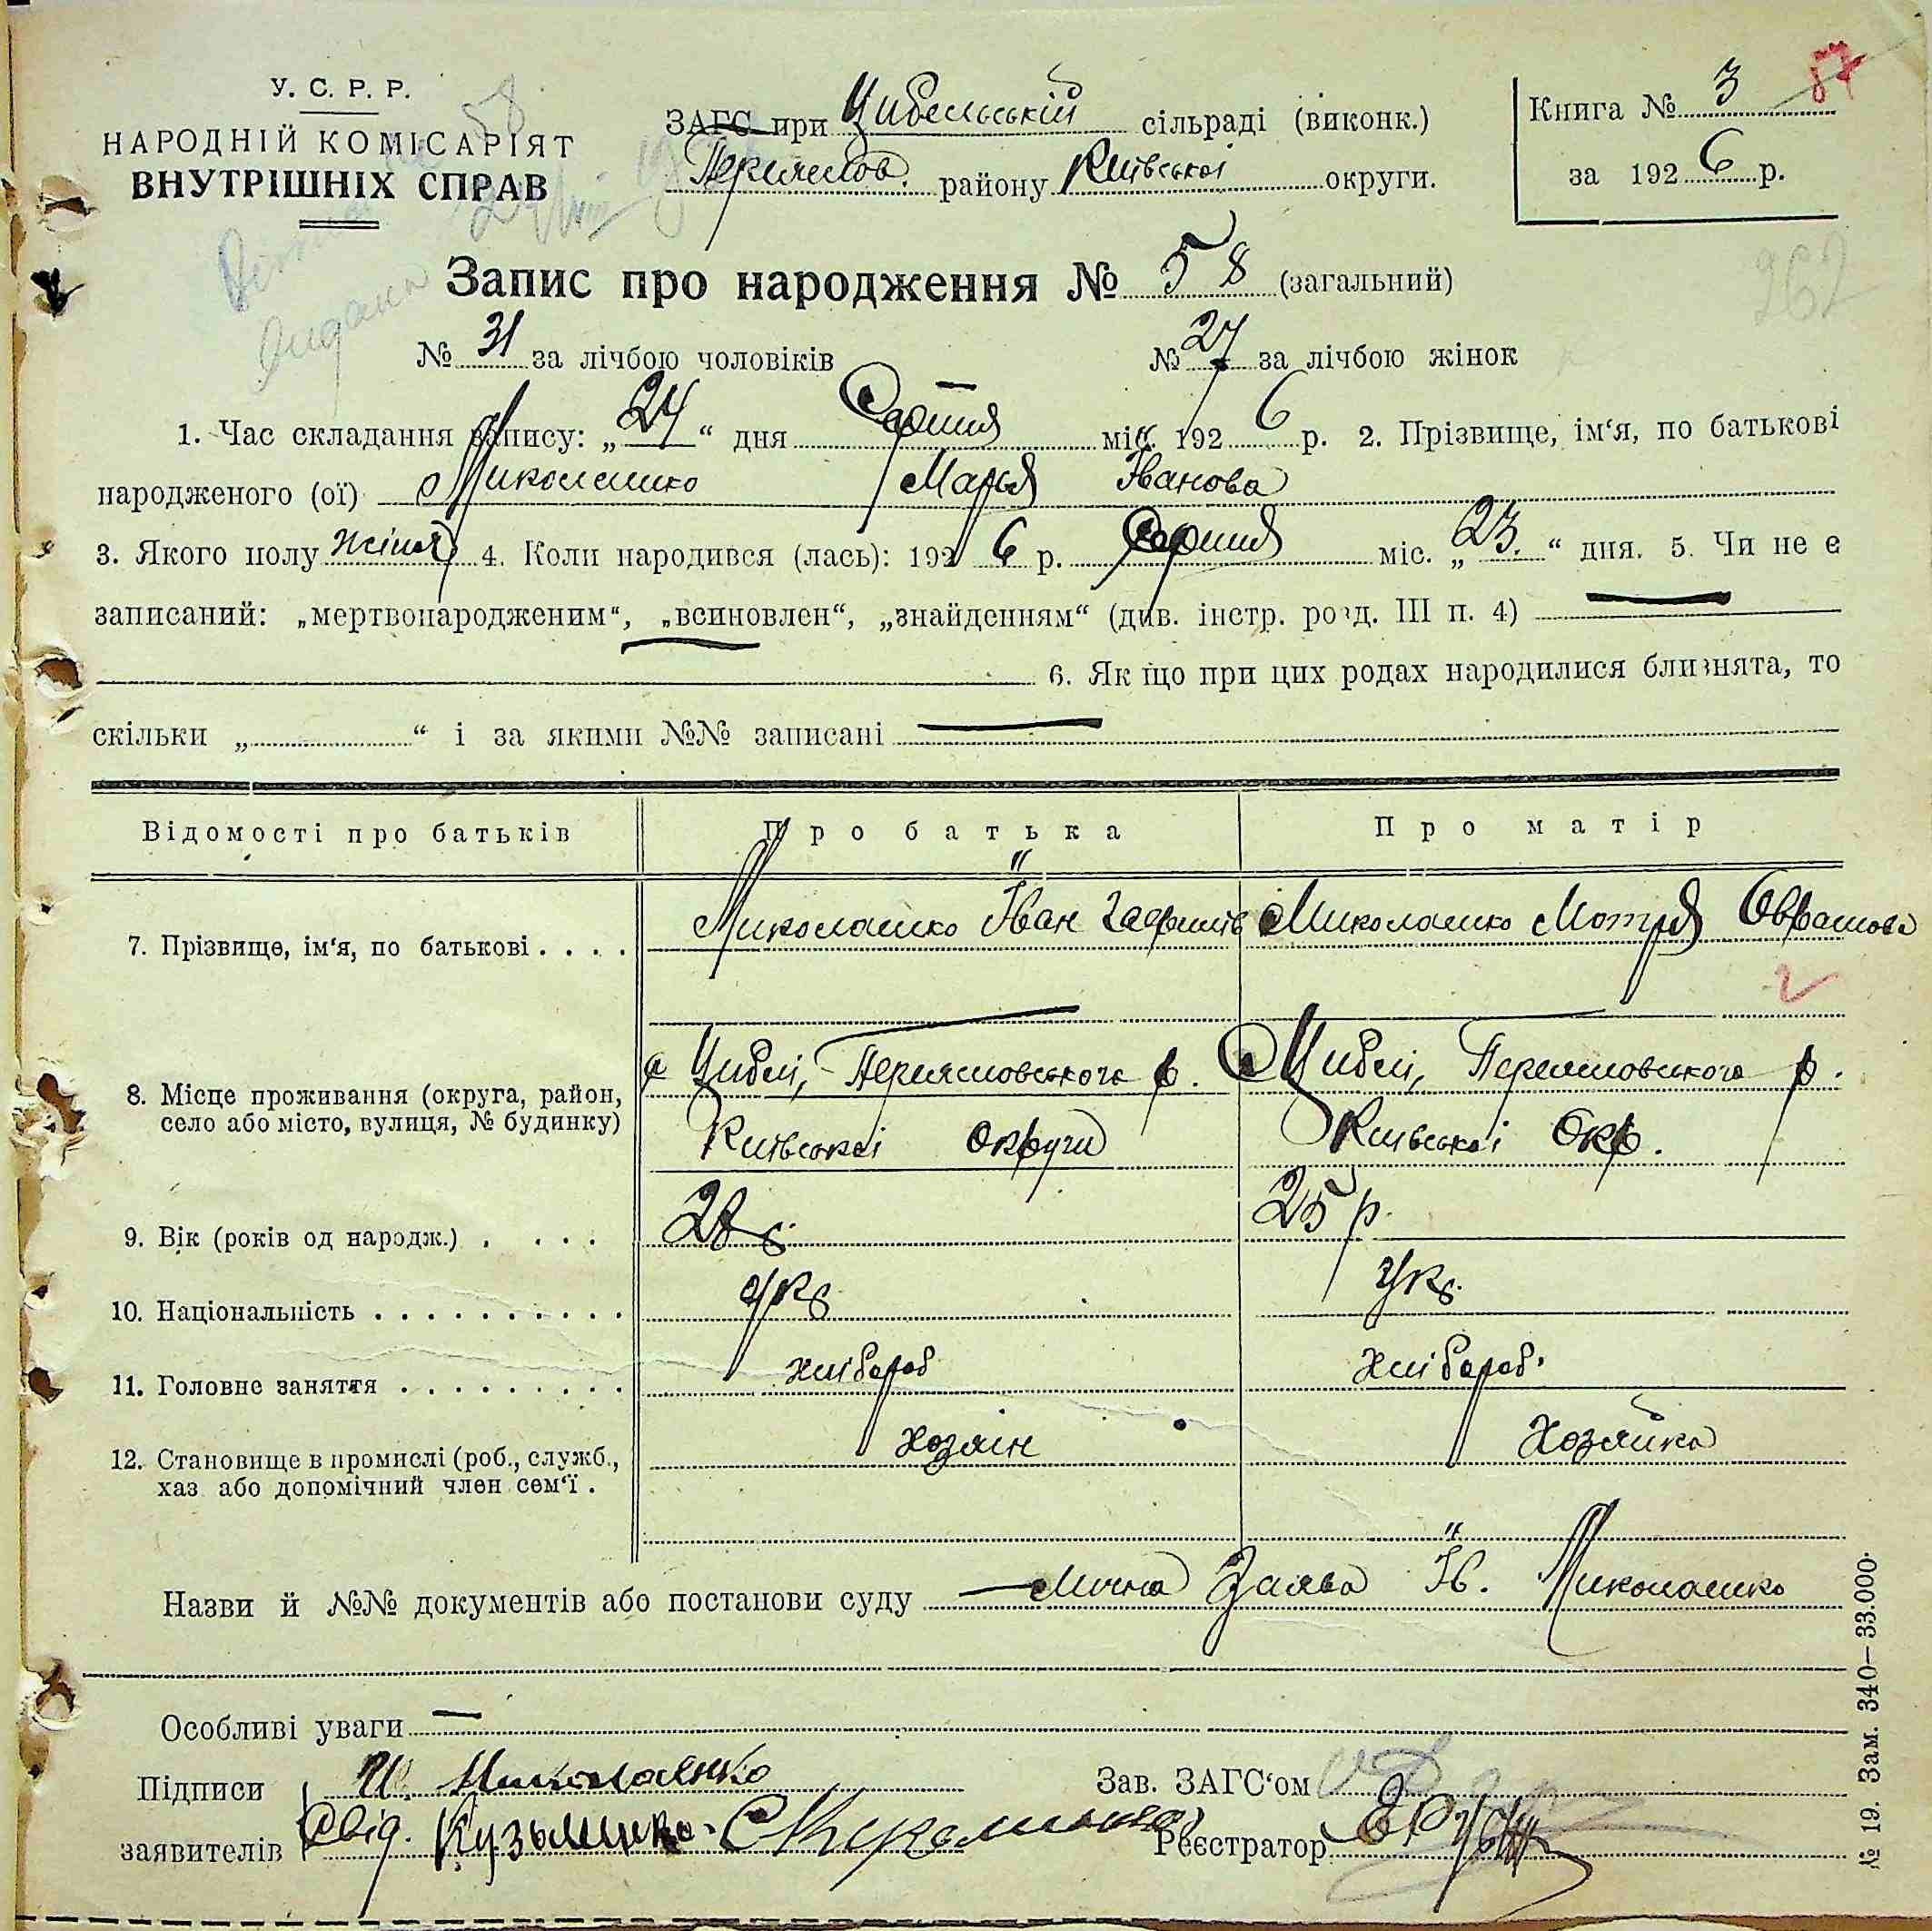 У. С. Р. Р.
НАРОДНІЙ КОМІСАРІЯТ
ВНУТРІШНІХ СПРАВ
58
ЗАГС при Цибельській сільраді (виконк.)
Переяслов. району Київської округи.
Книга № 3
87
за 1926 р.
262
Запис про народження № 58 (загальний)
№ 31 за лічбою чоловіків № 27 за лічбою жінок
1. Час складання запису: „24“ дня Серпня міс. 1926 р. 2. Прізвище, ім‘я, по батькові
народженого (ої) Миколаєнко Марья Іванова
3. Якого полу жіноч 4. Коли народився (лась): 1926 р. Серпня міс. „23.“ дня. 5. Чи не є
записаний: „мертвонародженим“, „всиновлен“, „знайденням“ (див. інстр. розд. III п. 4) —
6. Якщо при цих родах народилися близнята, то
скільки „ “ і за якими №№ записані —
Відомості про батьків Про батька Про матір
7. Прізвище, ім‘я, по батькові . . . . Миколаєнко Іван Миколаєнко Мотря
8. Місце проживання (округа, район, с Циблі, Переясловського р. с Циблі, Переясловського р.
село або місто, вулиця, № будинку) Київської Округи Київської Окр.
9. Вік (років од народж.) . . . . 28 р. 25 р.
10. Національність . . . . . . . . . . укр. укр.
11. Головне заняття . . . . . . . . . хлібороб хлібороб.
12. Становище в промислі (роб., служб., хозяїн Хозяйка
хаз. або допомічний член сем‘ї .
Назви й №№ документів або постанови суду — Лична Заява Ів. Миколаєнко
Особливі уваги —
Підписи И. Миколаєнко Зав. ЗАГС‘ом
заявителів Свід. Кузьменко Реєстратор
№ 19. Зам. 340—33.000.